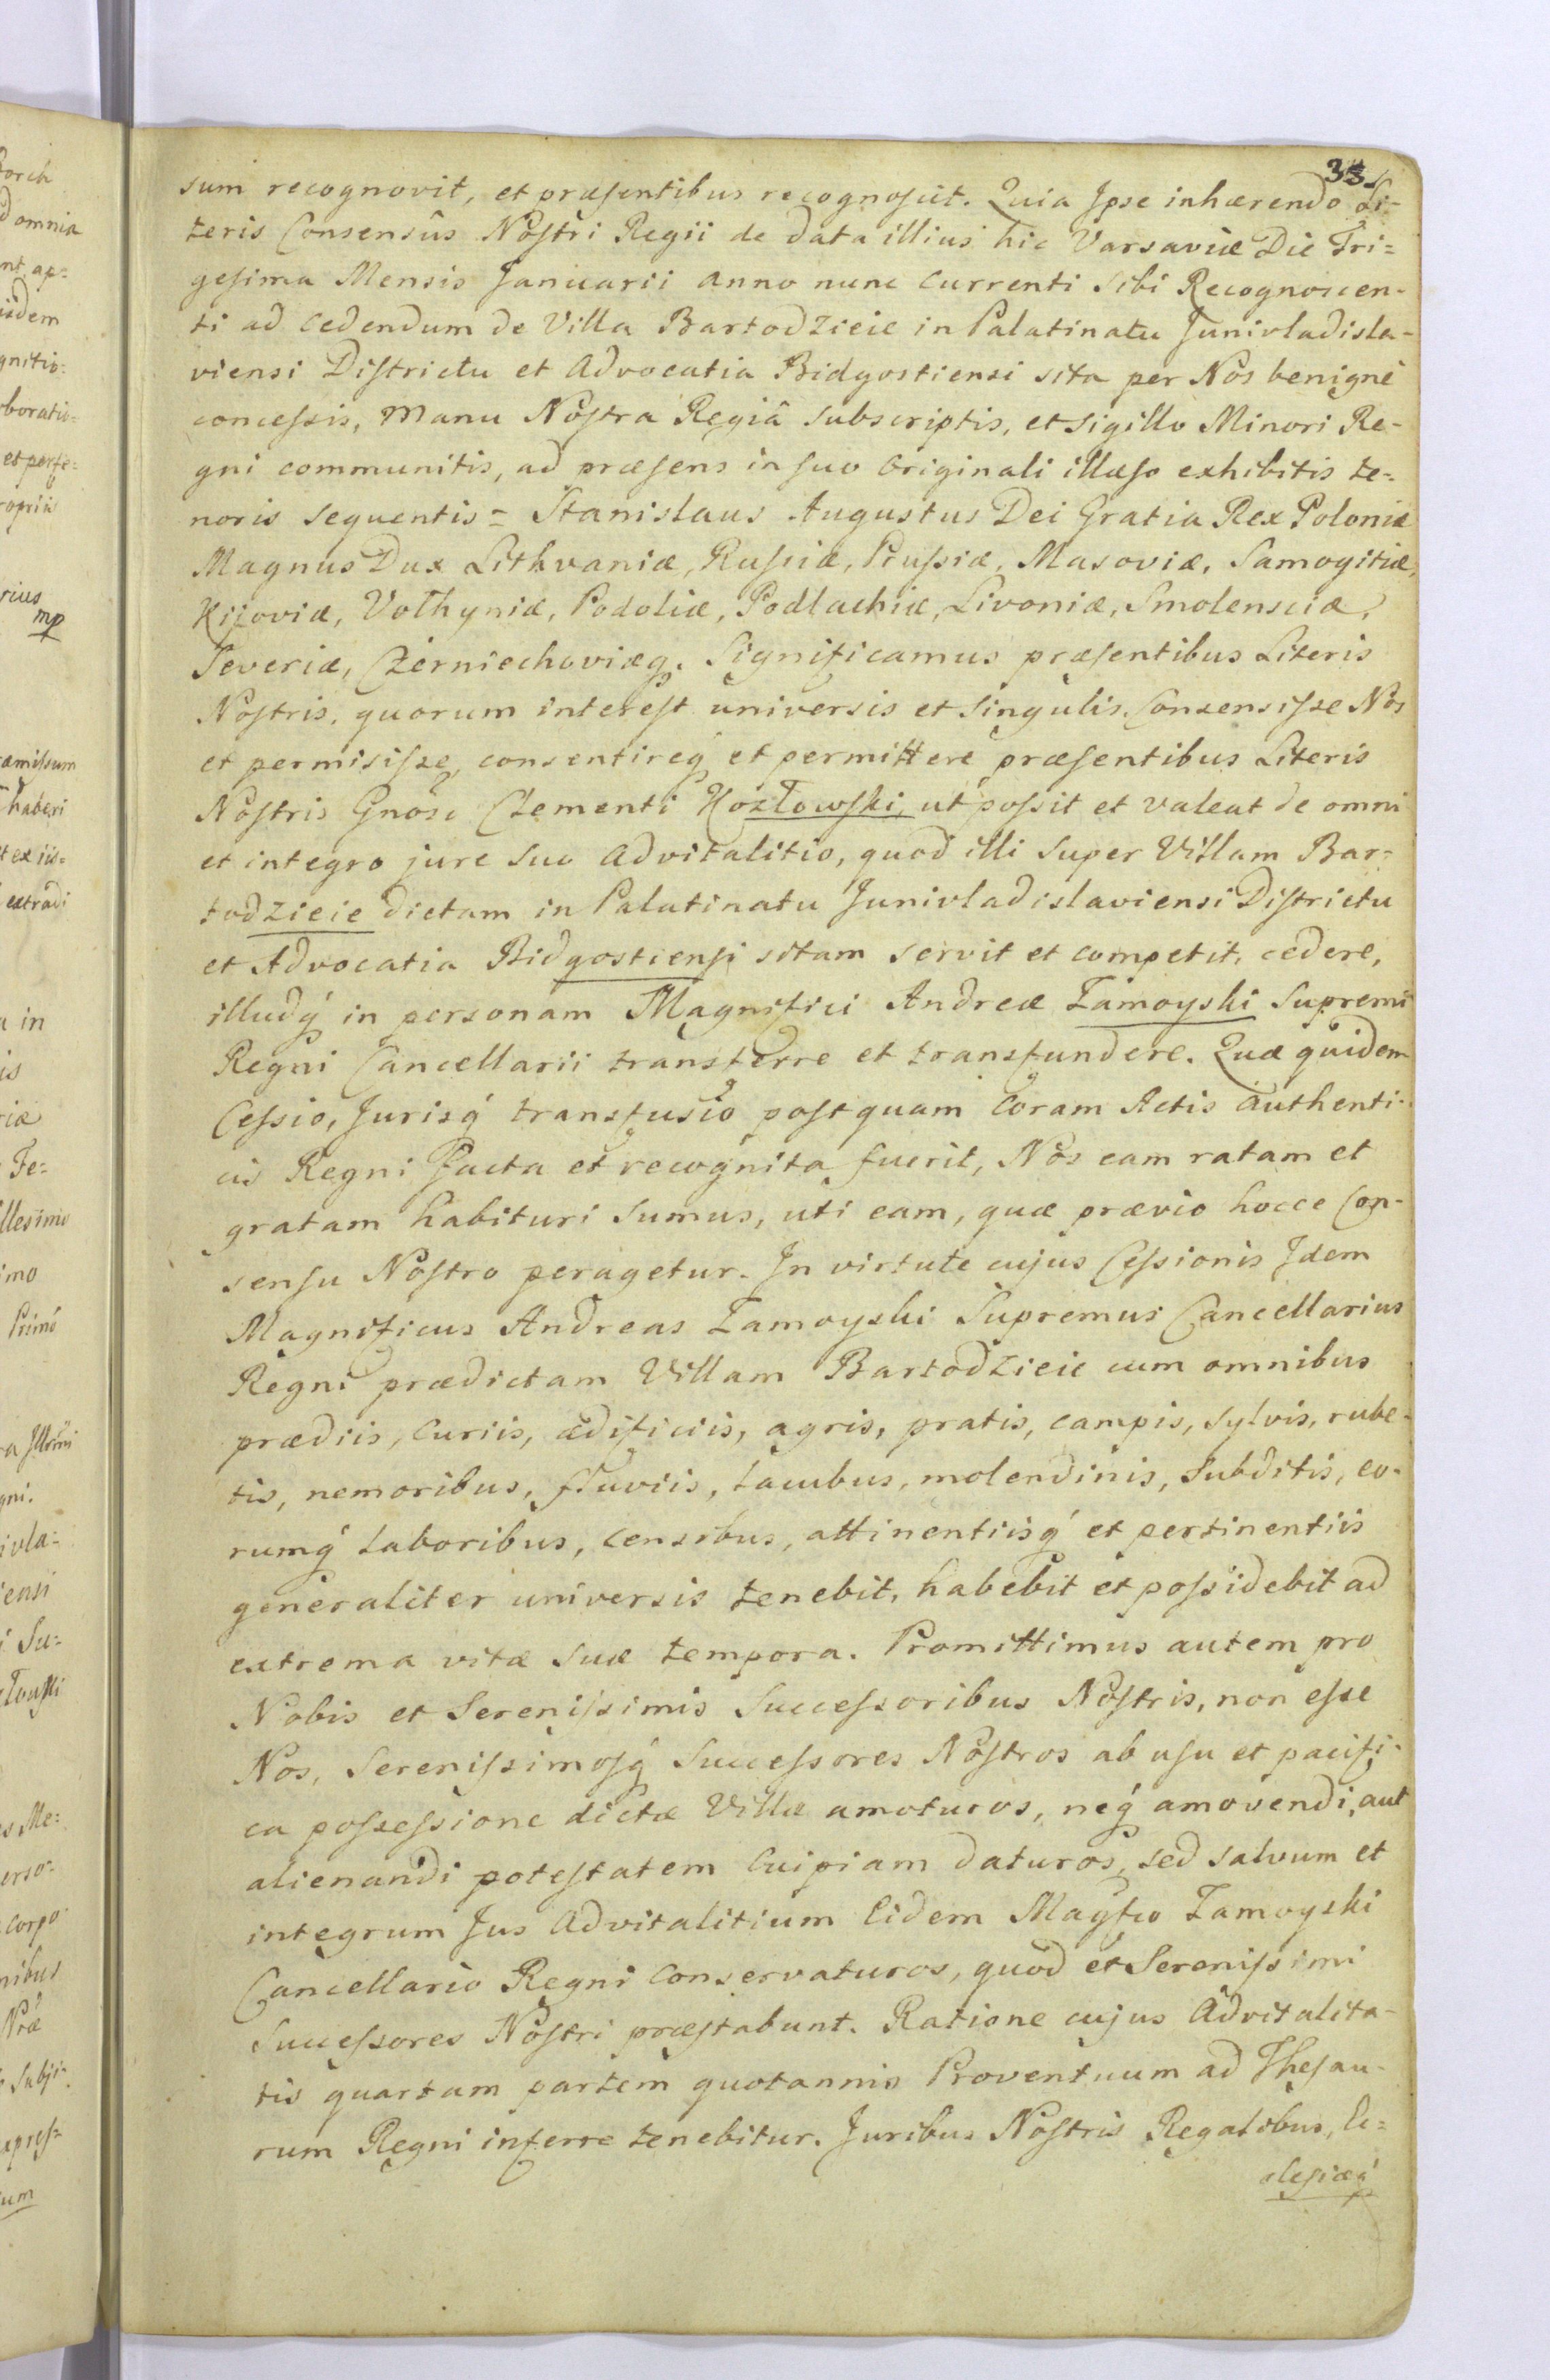 33
sum recognovit, et præsentibus recognoscit. Quia Ipse inhærendo Li-
teris Consensûs Nostri Regii de data illius hic Varsaviæ Die Tri=
gesima Mensis Januarii anno nunc currenti sibi Recognoscen-
ti ad cedendum de Villa Bartodzieie in Palatinatu Junivladisla-
viensi Districtu et Advocatia Bidgostiensi sita per Nos benignè
concessis, Manu Nostra Regiâ subscriptis, et sigillo Minori Re-
gni communitis, ad præsens in suo Originali illæso exhibitis te-
noris sequentis = Stanislaus Augustus Dei Gratia Rex Poloniæ
Magnus Dux Lithvaniæ, Russiæ, Prussiæ, Masoviæ, Samogitiæ,
Kijoviæ, Volhyniæ, Podoliæ, Podlachiæ, Livoniæ, Smolensciæ,
Severiæ, Czerniechoviæq. Significamus præsentibus Literis
Nostris, quorum interest universis et singulis. Consensisse Nos
et permisisse, consentireq́ et permittere præsentibus Literis
Nostris Gnoso Clementi Kozłowski, ut possit et valeat de omni
et integro jure suo advitalitio, quod illi super Villam Bar-
todzieie dictam in Palatinatu Junivladislaviensi Districtu
et Advocatia Bidgostiensi sitam servit et competit, cedere,
illudq́ in personam Magnifici Andreæ Zamoyski Supremi
Regni Cancellarii transferre et transfundere. Quæ quidem
Cessio, Jurisq́ transfusio postquam Coram Actis authenti-
cis Regni facta et recognita fuerit, Nos eam ratam et
gratam habituri sumus, uti eam, quæ prævio hocce Con-
sensu Nostro peragetur. In virtute cujus Cessionis Idem
Magnificus Andreas Zamoyski Supremus Cancellarius
Regni prædictam Villam Bartodzieie cum omnibus
prædiis, curiis, ædificiis, agris, pratis, campis, sylvis, rube-
tis, nemoribus, fluviis, lacubus, molendinis, subditis, eo-
rumq́ laboribus, censibus, attinentiisq́ et pertinentiis
generaliter universis tenebit, habebit et possidebit ad
extrema vitæ suæ tempora. Promittimus autem pro
Nobis et Serenissimis Successoribus Nostris, non esse
Nos, Serenissimosq́ Successores Nostros ab usu et pacifi-
ca possessione dictæ Villæ amoturos, neq́ amovendi, aut
alienandi potestatem cuipiam daturos, sed salvum et
integrum Jus Advitalitium Eidem Magfco Zamoyski
Cancellario Regni conservaturos, quod et Serenissimi
Successores Nostri præstabunt. Ratione cujus Advitalita-
tis quartam partem quotannis Proventuum ad Thesau-
rum Regni inferre tenebitur. Juribus Nostris Regalibus, Ec=
clesiæq́